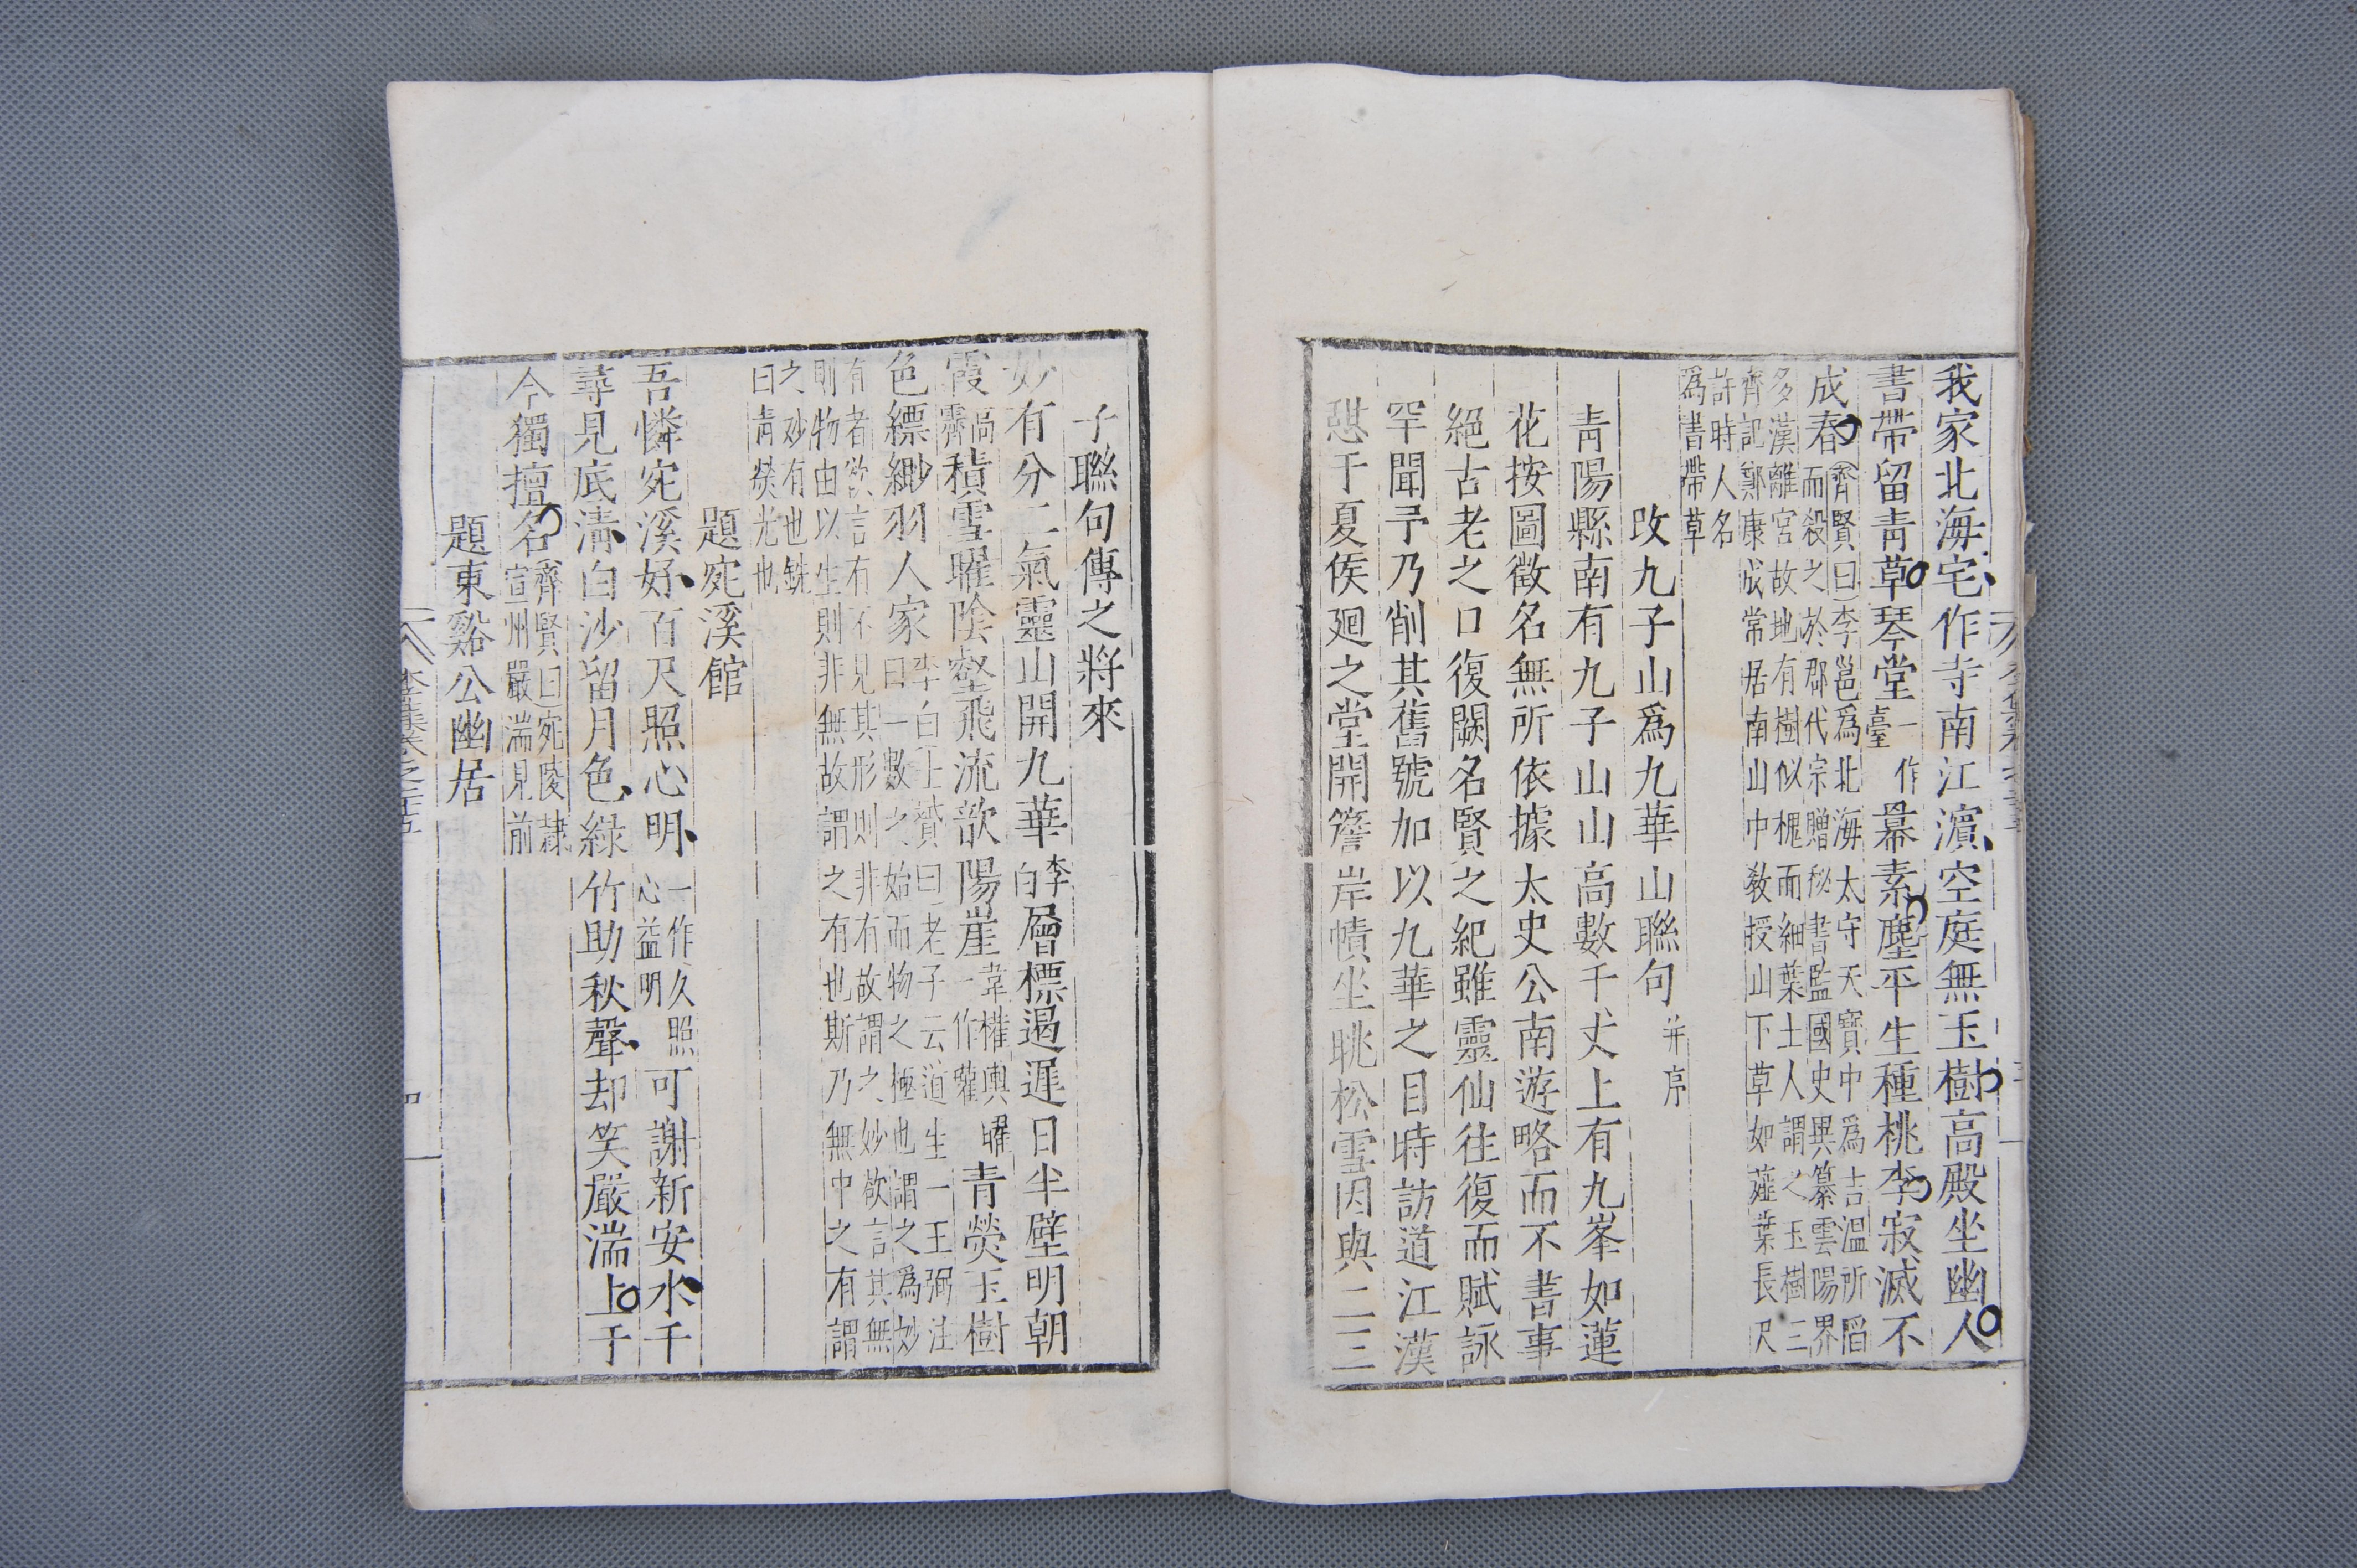 我家北海宅作寺南江濵空庭無玉樹高殿坐幽人
書帶留青草琴堂一作臺冪素塵平生種桃李寂滅不
成春齊賢曰李邕爲北海太守天寶中爲吉溫所陷
而殺之於郡代宗贈秘書監國史異纂雲陽界
多漢離宮故地有樹似槐而細葉土人謂之玉樹三
齊記鄭康成常居南山中教授山下草如薤葉長尺
許時人名
爲書帶草
攺九子山爲九華山聯句并序
青陽縣南有九子山山高數千丈上有九峯如蓮
花按圖徵名無所依據太史公南遊略而不書事
絕古老之口復闕名賢之紀雖靈仙往復而賦詠
罕聞予乃削其舊號加以九華之目時訪道江漢
憇于夏侯廻之堂開簷岸幘坐眺松雪因與二三
子聯句傳之將來
妙有分二氣靈山開九華李白層標遏遲日半壁明朝
霞高霽積雪曜陰壑飛流歕陽崖韋權輿一作權曜青熒玉樹
色縹緲羽人家李白士贇曰老子云道生一王弼注
曰一數之始而物之極也謂之爲妙
有者欲言有不見其形則非有故謂之妙欲言其無
則物由以生則非無故謂之有也斯乃無中之有謂
之妙有也銑
曰青熒光也
題宛溪館
吾憐宛溪好百尺照心明一作久照心益明可謝新安水千
尋見底清白沙留月色綠竹助秋聲却笑嚴湍上于
今獨擅名齊賢曰宛陵隷
宣州嚴湍見前
題東谿公幽居
李集卷之二十五